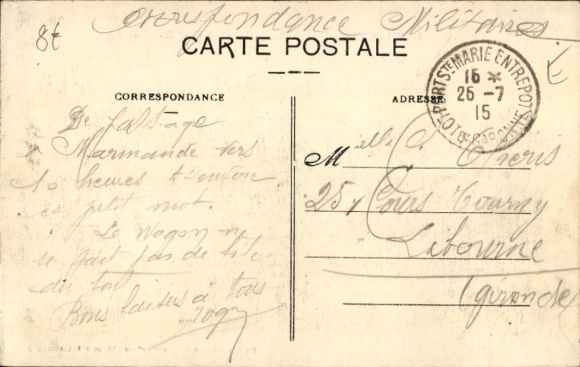 Correspondance Militaire
8t
CARTE POSTALE
CORRESPONDANCE
ADRESSE
PORT STE MARIE ENTREPOT
LOT ET GARONNE
16 *
26 -7
15
E
De passage
Marmande vers
10 heures t'envoie
ce petit mot.
Le Wagon ne
se fait pas de bile
du tout
Bons baisers à tous
Melle C.
25 Cours Tourny
Libourne
(Gironde)